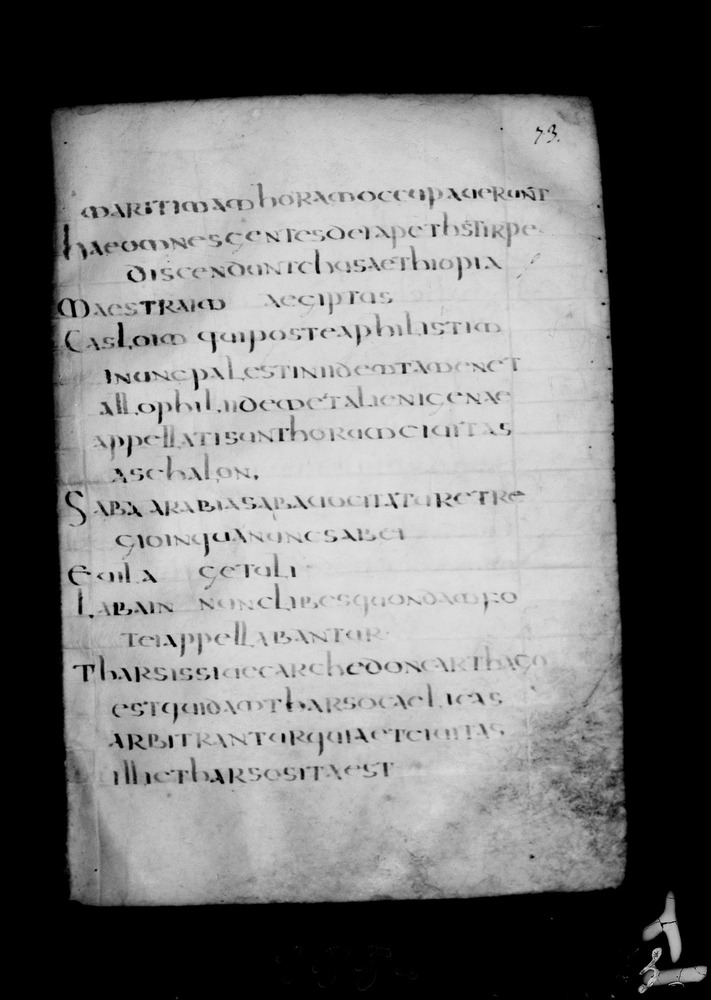 73.
MARITIMAM hORAM OCCUPAUERUNT
hAE OMNES GENTES DE IAPETh STIRPE
DISCENDUNT ChUS AEThIOPIA
MAESTRAIM AEGIPTUS
CASLOIM QUI POSTEA PhILISTIM
IN UNC PALESTINI IDEM TAMEN ET
ALLOPhILI IDEM ET ALIENIGENAE
APPELLATI SUNT hORUM CIUITAS
ASChALON.
SABA ARABIA SABA UOCITATUR ET RE
GIO IN QUA NUNC SABEI
EUILA GETULI
LABAIN NUNC LIBES QUONDAM FO
TEI APPELLABANTUR
ThARSIS SIUE CARChEDON CARThAGO
EST QUIDAM ThARSO CAELICAS
ARBITRANTUR QUIA ET CIUITAS
ILLIC ThARSO SITA EST